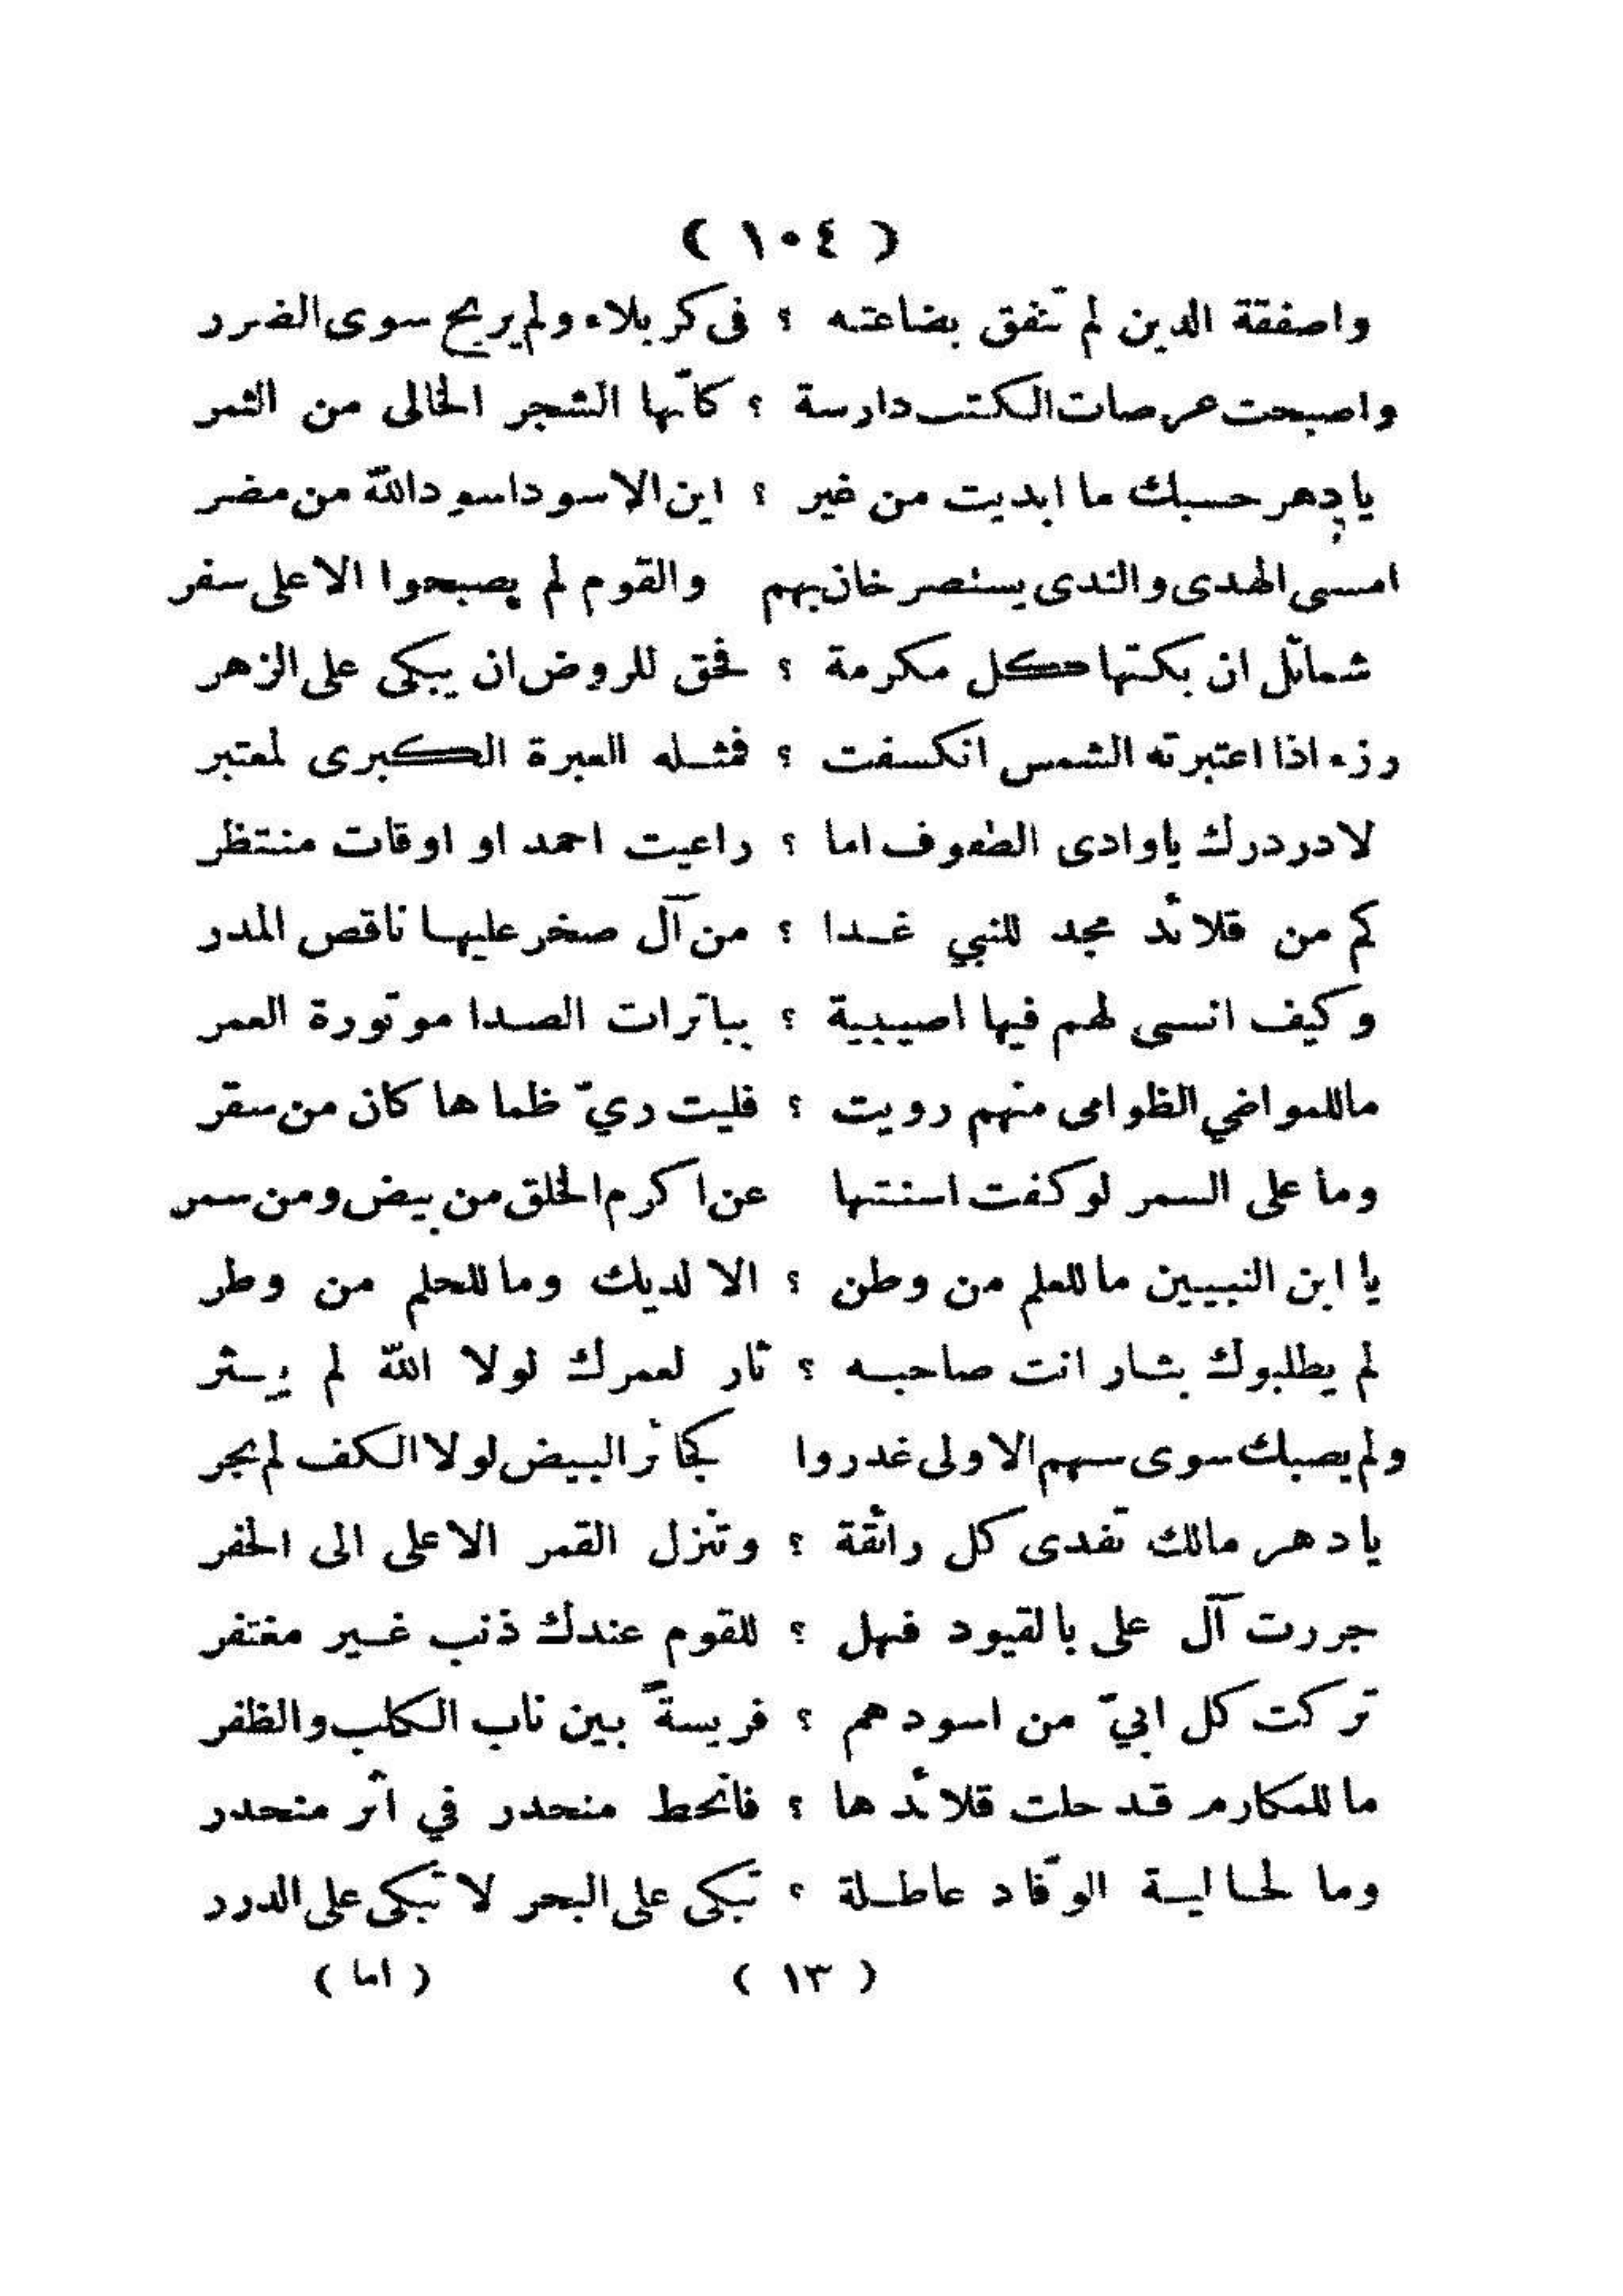 ( ١٠٤ )
واصفقة الدين لم تنفق بضاعته ؟ فى كربلاء ولم يربح سوى الضرر
واصبحت عرصات الكتب دارسة ؟ كأنّها الشجر الخالى من الثمر
يا دهر حسبك ما ابديت من غير ؟ اين الاسود اسود اللّه من مضر
امسى الهدى والندى يستصرخان بهم والقوم لم يصبحوا الا على سفر
شمائل ان بكتها كل مكرمة ؟ فحق للروض ان يبكى على الزهر
رزء اذا اعتبرته الشمس انكسفت ؟ فمثله العبرة الكبرى لمعتبر
لا در درك يا وادى الطفوف اما ؟ راعيت احمد او اوقات منتظر
كم من قلائد مجد للنبي غدا ؟ من آل صخر عليها ناقص المدر
وكيف انسى لهم فيها اصيبية ؟ بباترات الصدا موتورة العمر
ما للمواضي الظوامى منهم رويت ؟ فليت ريّ ظماها كان من سقر
وما على السمر لو كفت اسنتها عن اكرم الخلق من بيض ومن سمر
يا ابن النبيين ما للعلم من وطن ؟ الا لديك وما للحلم من وطر
لم يطلبوك بثار انت صاحبه ؟ ثار لعمرك لولا اللّه لم يثر
ولم يصبك سوى سهم الاولى غدروا كجائر البيض لولا الكف لم يجر
يا دهر مالك تفدى كل رائقة ؟ وتنزل القمر الاعلى الى الحفر
جررت آل على بالقيود فهل ؟ للقوم عندك ذنب غير مغتفر
تركت كل ابيّ من اسودهم ؟ فريسةً بين ناب الكلب والظفر
ما للمكارم قد حلت قلائدها ؟ فانحط منحدر في اثر منحدر
وما لحالية الوفّاد عاطلة ؟ تبكى على البحر لا تبكى على الدرر
( ١٣ ) ( اما )